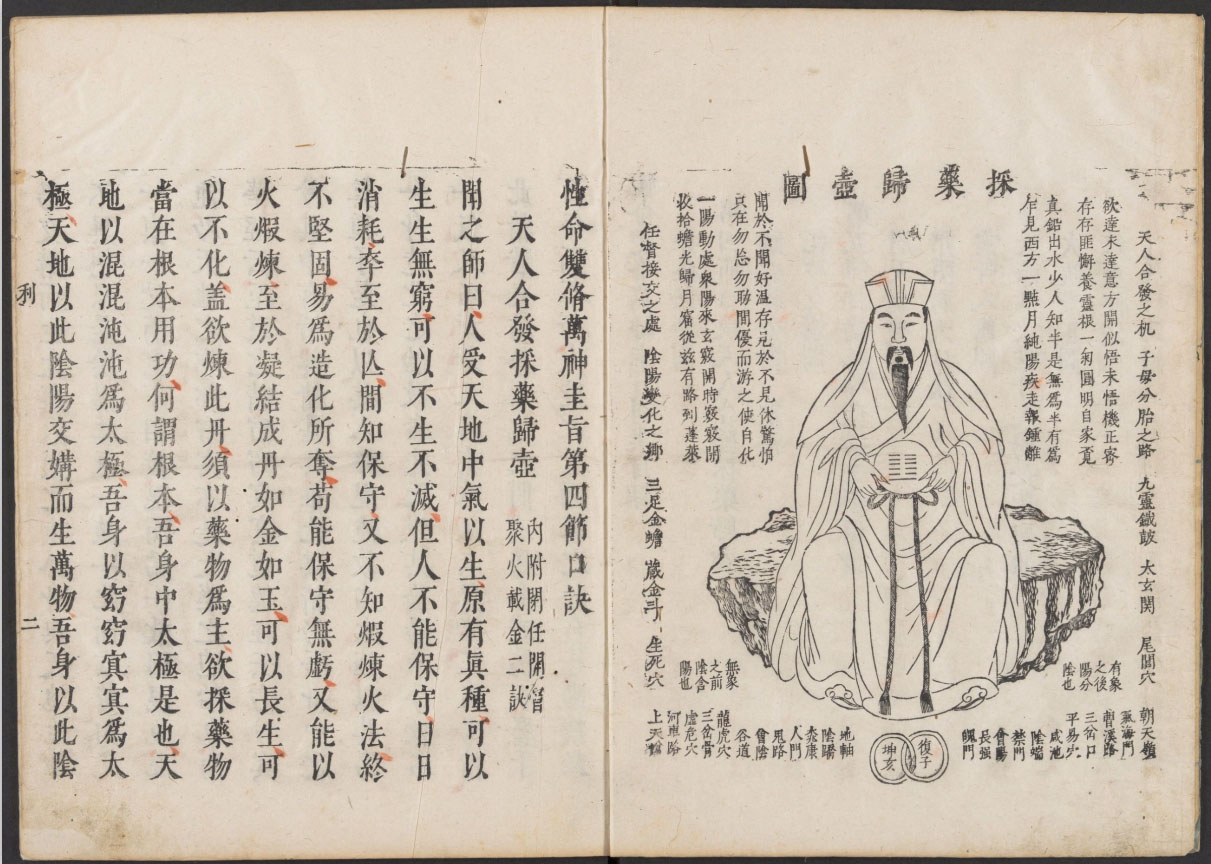 採藥歸壺圖
天人合發之机 子母分胎之路 九靈鐵鼓 太玄関 尾閭穴
欲達未達意方開似悟未悟機正密
存存匪懈養靈根一匊圓明自家覔
真鉛出水少人知半是無爲半有爲
乍見西方一點月純陽疾走報鍾離
聞於不聞好温存見於不見休驚怕
只在勿忘勿助間優而游之使自化
一陽動處衆陽來玄竅開時竅竅開
收拾蟾光歸月窟從兹有路到蓬萊
任督接交之處 陰陽變化之鄉 三足金蟾 藏金斗 生死穴
有象
之後
陽分
陰也
無象
之前
陰含
陽也
朝天嶺
氣海門
曹溪路
三岔口
平易穴
咸池
陰端
禁門
會陽
長强
魄門
復子
坤亥
地軸
陰蹻
桃康
人門
鬼路
會陰
谷道
龍虎穴
三岔骨
虛危穴
河車路
上天梯
性命雙脩萬神圭旨第四節口訣
天人合發採藥歸壺
內附閉任開督
聚火載金二訣
聞之師曰人受天地中氣以生原有眞種可以
生生無窮可以不生不滅但人不能保守日日
消耗卒至於亾間知保守又不知煆煉火法終
不堅固易爲造化所奪苟能保守無虧又能以
火煆煉至於凝結成丹如金如玉可以長生可
以不化葢欲煉此丹須以藥物爲主欲採藥物
當在根本用功何謂根本吾身中太極是也天
地以混混沌沌爲太極吾身以窈窈㝠㝠爲太
極天地以此陰陽交媾而生萬物吾身以此陰
利
二